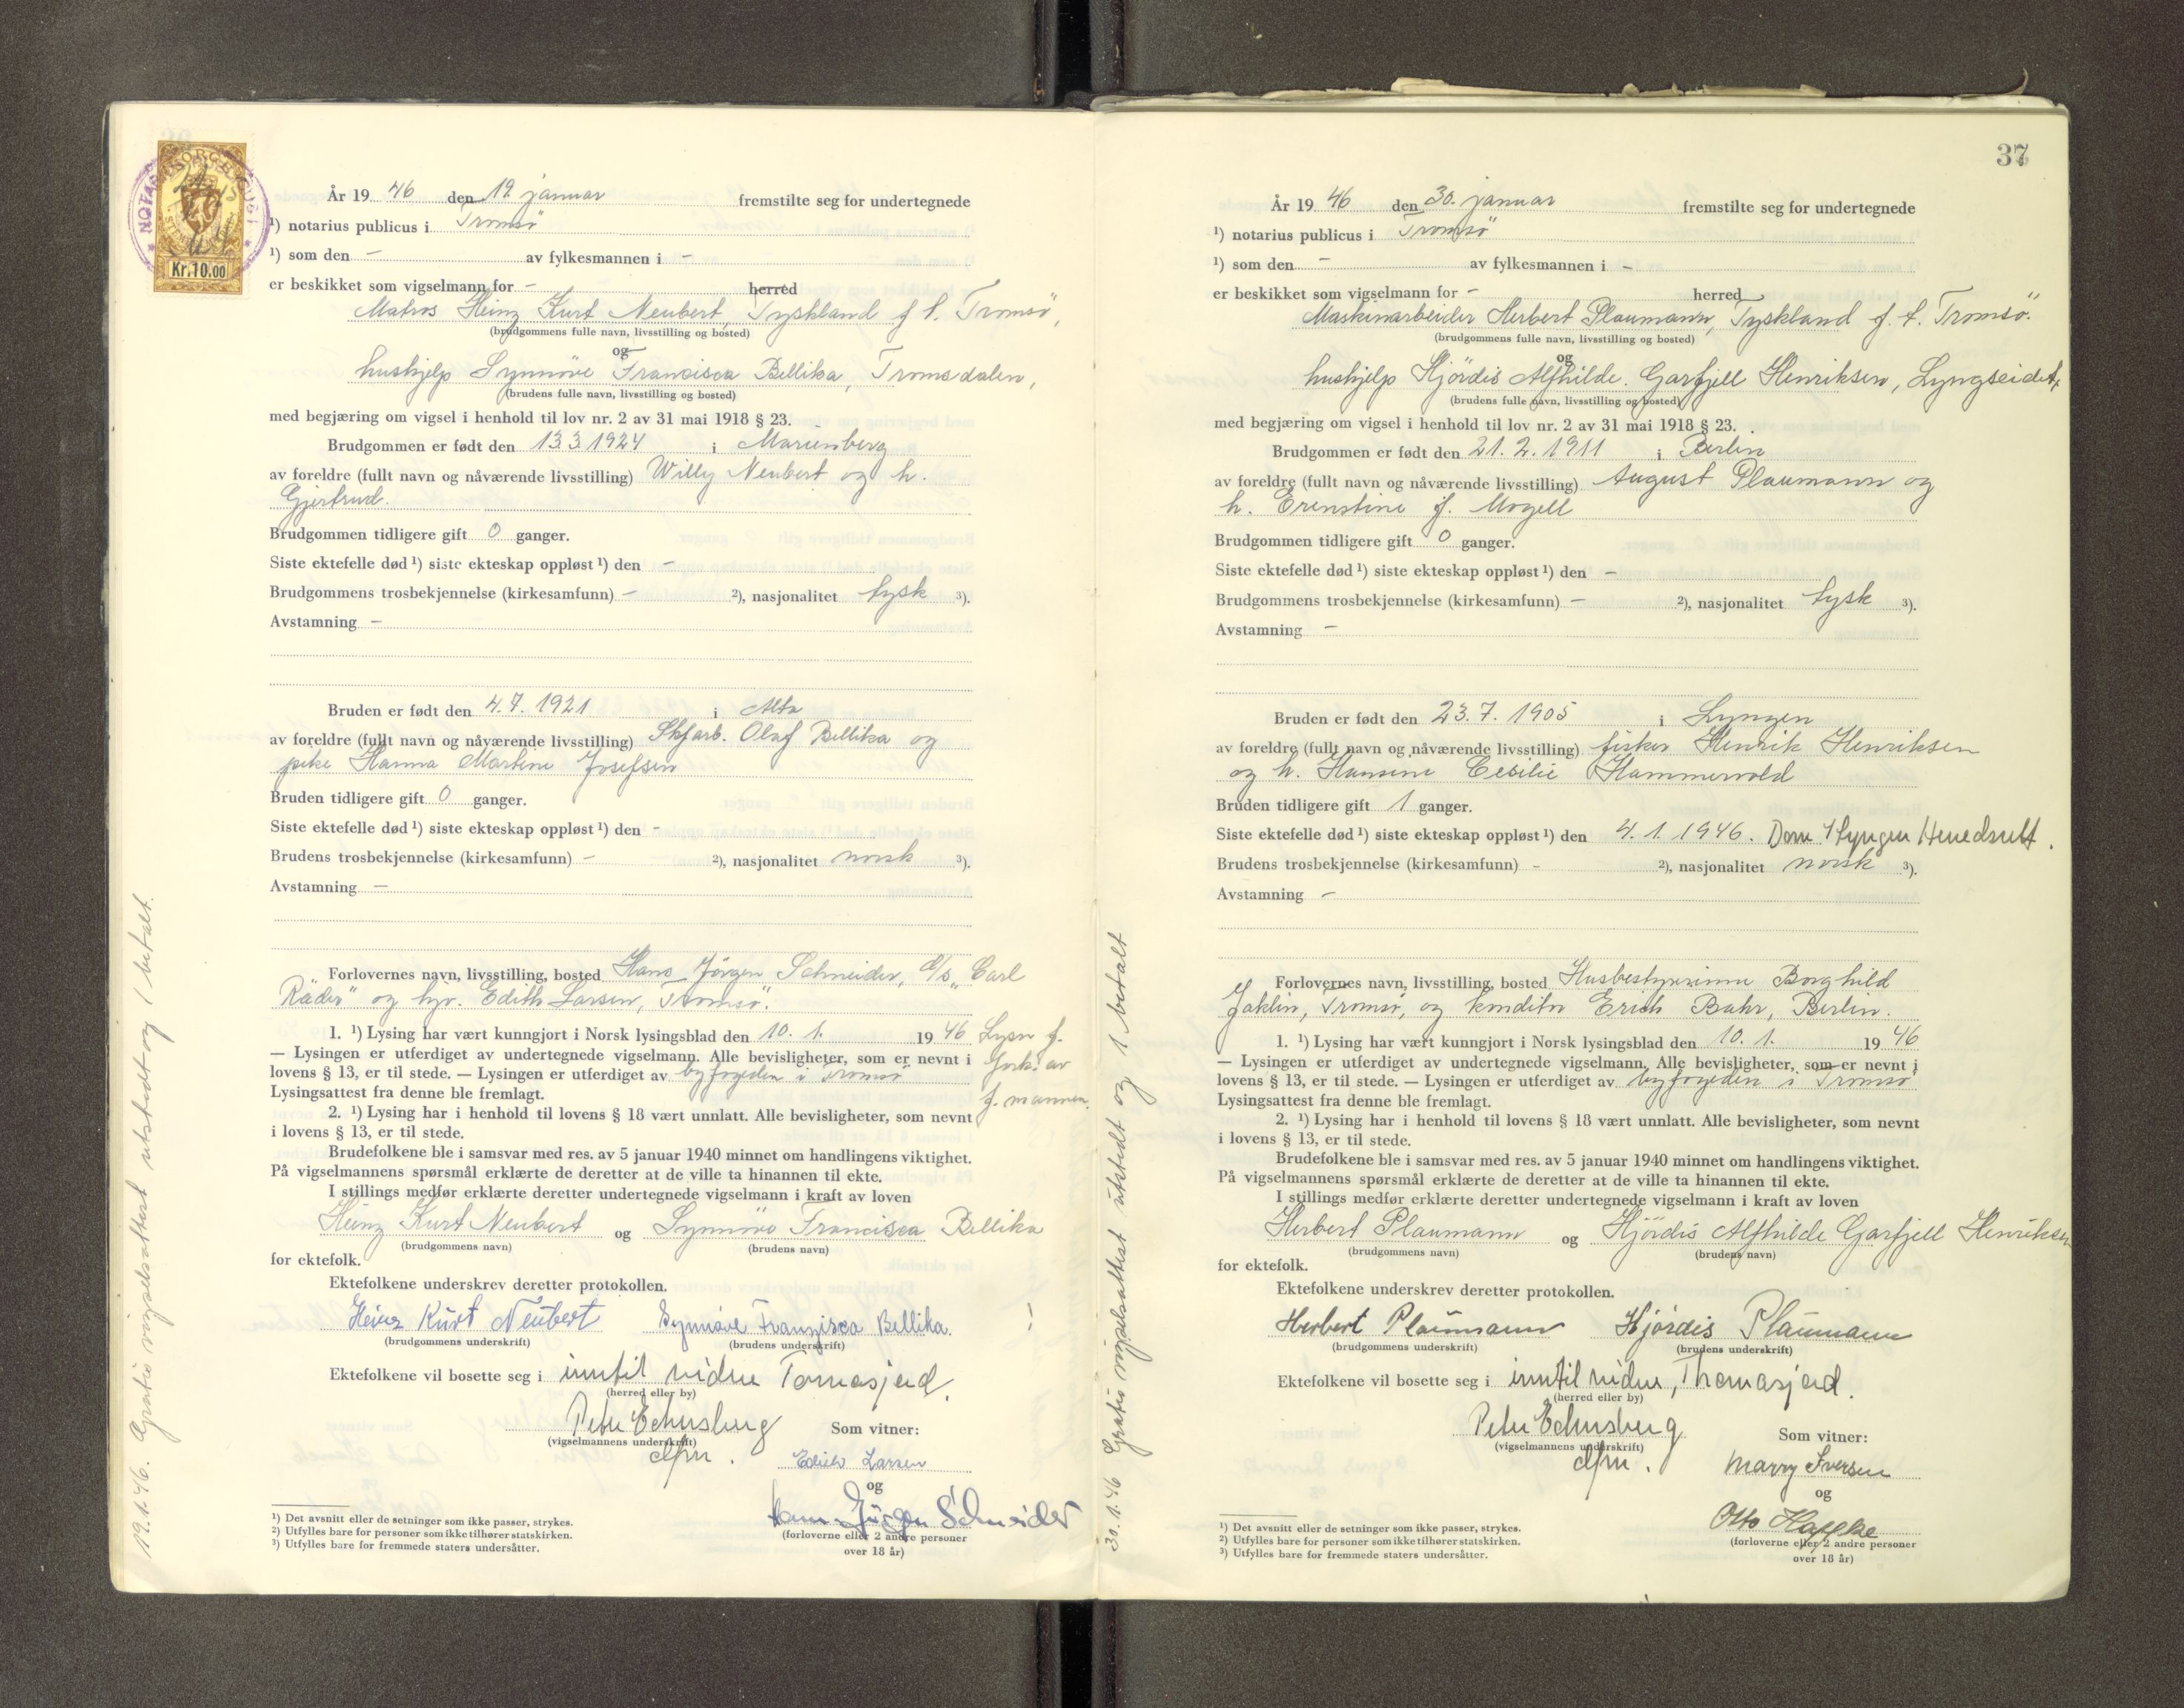 År 19 46 den 19. januar fremstilte seg for undertegnede
¹) notarius publicus i Tromsö
¹) som den – av fylkesmannen i –
er beskikket som vigselmann for – herred
Matros Heinz Kurt Neubert, Tyskland f. t. Tromsö,
(brudgommens fulle navn, livsstilling og bosted)
og
hushjelp Synnöve Francisca Bellika, Tromsdalen,
(brudens fulle navn, livsstilling og bosted)
med begjæring om vigsel i henhold til lov nr. 2 av 31 mai 1918 § 23.
Brudgommen er født den 13 3 1924 i Marienberg
av foreldre (fullt navn og nåværende livsstilling) Willy Neubert og h.
Gjertrud.
Brudgommen tidligere gift 0 ganger.
Siste ektefelle død ¹) siste ekteskap oppløst ¹) den –
Brudgommens trosbekjennelse (kirkesamfunn) – ²), nasjonalitet tysk ³).
Avstamning –
Bruden er født den 4.7.1921 i Alta
av foreldre (fullt navn og nåværende livsstilling) Skfarb. Olaf Bellika og
pike Hanna Martine Josefsen
Bruden tidligere gift 0 ganger.
Siste ektefelle død ¹) siste ekteskap oppløst ¹) den –
Brudens trosbekjennelse (kirkesamfunn) – ²), nasjonalitet norsk ³).
Avstamning –
Forlovernes navn, livsstilling, bosted Hans Jörgen Schneider, D/s „Carl
Räder" og hjv. Edith Larsen, Tromsö.
1. ¹) Lysing har vært kunngjort i Norsk lysingsblad den 10. 1. 19 46 Lysn f.
— Lysingen er utferdiget av undertegnede vigselmann. Alle bevisligheter, som er nevnt i fork. av
lovens § 13, er til stede. — Lysingen er utferdiget av byfogden i Tromsö
Lysingsattest fra denne ble fremlagt. f. mannen.
2. ¹) Lysing har i henhold til lovens § 18 vært unnlatt. Alle bevisligheter, som nevnt
i lovens § 13, er til stede.
Brudefolkene ble i samsvar med res. av 5 januar 1940 minnet om handlingens viktighet.
På vigselmannens spørsmål erklærte de deretter at de ville ta hinannen til ekte.
I stillings medfør erklærte deretter undertegnede vigselmann i kraft av loven
Heinz Kurt Neubert og Synnöve Francisca Bellika
(brudgommens navn) (brudens navn)
for ektefolk.
Ektefolkene underskrev deretter protokollen.
Heinz Kurt Neubert Synnöve Franzisca Bellika. !
(brudgommens underskrift) (brudens underskrift)
Ektefolkene vil bosette seg i inntil videre Tomasjord.
(herred eller by)
(vigselmannens underskrift) Som vitner:
Edith Larsen
og
Hans-Jürgen Schneider
(forloverne eller 2 andre personer
over 18 år)
¹) Det avsnitt eller de setninger som ikke passer, strykes.
²) Utfylles bare for personer som ikke tilhører statskirken.
³) Utfylles bare for fremmede staters undersåtter.
19.1.46. Gratis vigselsattest utstedt og 1 betalt.
Kr.10.00
37
År 19 46 den 30. januar fremstilte seg for undertegnede
¹) notarius publicus i Tromsö
¹) som den – av fylkesmannen i –
er beskikket som vigselmann for – herred
Maskinarbeider Herbert Plaumann, Tyskland f. t. Tromsö.
(brudgommens fulle navn, livsstilling og bosted)
og
hushjelp Hjördis Alfhilde. Garfjell Henriksen, Lyngseidet,
(brudens fulle navn, livsstilling og bosted)
med begjæring om vigsel i henhold til lov nr. 2 av 31 mai 1918 § 23.
Brudgommen er født den 21. 2. 1911 i Berlin
av foreldre (fullt navn og nåværende livsstilling) August Plaumann og
h. Erenstine f. Mozell
Brudgommen tidligere gift 0 ganger.
Siste ektefelle død ¹) siste ekteskap oppløst ¹) den –
Brudgommens trosbekjennelse (kirkesamfunn) – ²), nasjonalitet tysk ³).
Avstamning –
Bruden er født den 23.7.1905 i Lyngen
av foreldre (fullt navn og nåværende livsstilling) fisker Henrik Henriksen
og h. Hansine Cesilie Hammervold
Bruden tidligere gift 1 ganger.
Siste ektefelle død ¹) siste ekteskap oppløst ¹) den 4. 1. 1946. Dom Lyngen Herredsrett.
Brudens trosbekjennelse (kirkesamfunn) – ²), nasjonalitet norsk ³).
Avstamning –
Forlovernes navn, livsstilling, bosted Husbestyrerinne Borghild
Jaklin, Tromsö, og konditor Erich Bahr, Berlin.
1. ¹) Lysing har vært kunngjort i Norsk lysingsblad den 10. 1. 19 46
— Lysingen er utferdiget av undertegnede vigselmann. Alle bevisligheter, som er nevnt i
lovens § 13, er til stede. — Lysingen er utferdiget av byfogden i Tromsö
Lysingsattest fra denne ble fremlagt.
2. ¹) Lysing har i henhold til lovens § 18 vært unnlatt. Alle bevisligheter, som nevnt
i lovens § 13, er til stede.
Brudefolkene ble i samsvar med res. av 5 januar 1940 minnet om handlingens viktighet.
På vigselmannens spørsmål erklærte de deretter at de ville ta hinannen til ekte.
I stillings medfør erklærte deretter undertegnede vigselmann i kraft av loven
Herbert Plaumann og Hjördis Alfhilde Garfjell Henriksen
(brudgommens navn) (brudens navn)
for ektefolk.
Ektefolkene underskrev deretter protokollen.
Herbert Plaumann Hjördis Plaumann
(brudgommens underskrift) (brudens underskrift)
Ektefolkene vil bosette seg i inntil videre, Thomasjord.
(herred eller by)
(vigselmannens underskrift) Som vitner:
Marry Iversen
og
Otto Haffke
(forloverne eller 2 andre personer
over 18 år)
¹) Det avsnitt eller de setninger som ikke passer, strykes.
²) Utfylles bare for personer som ikke tilhører statskirken.
³) Utfylles bare for fremmede staters undersåtter.
30.1.46 Gratis vigselsattest utstedt og 1 betalt